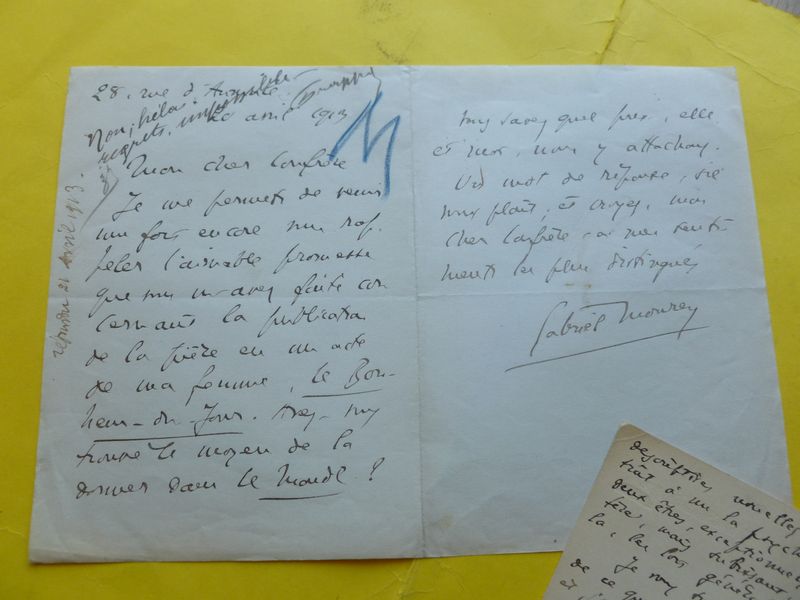 28, rue d'
Non, hélas
regrets,
avril 1913
Mon cher Confrère
Je me permets de venir
une fois encore vous rap-
peler l'aimable promesse
que vous m'avez faite con
cernant la publication
de la pièce en un acte
de ma femme, le Bon-
heur-du-Jour. Avez-vous
trouvé le moyen de la
donner dans le Monde ?
21 avril 1913.
vous savez quel prix, elle
et moi, nous y attachons.
Un mot de réponse, s'il
vous plaît, et croyez, mon
cher Confrère à mes senti-
ments les plus distingués
Gabriel Mourey
descriptions, nouvelles
deux êtres,
mais
la, les lois
Je vous
de ce
et